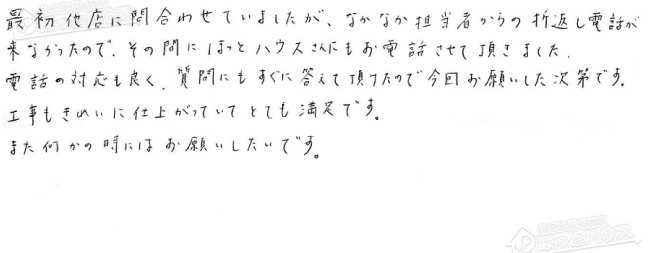 最初他店に問合わせていましたが、なかなか担当者からの折返し電話が
来なかったので、その間にほっとハウスさんにもお電話させて頂きました。
電話の対応も良く、質問にもすぐに答えて頂けたので今回お願いした次第です。
工事もきれいに仕上がっていてとても満足です。
また何かの時にはお願いしたいです。
ほっとハウス